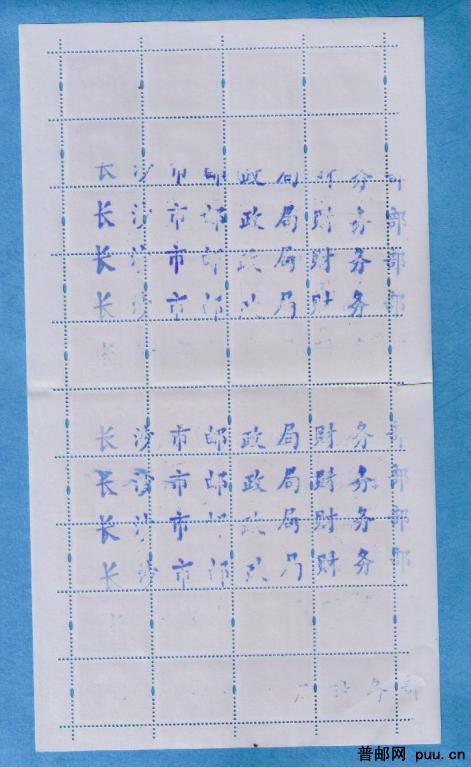 长沙市邮政局财务部
长沙市邮政局财务部
长沙市邮政局财务部
长沙市邮政局财务部
长沙市邮政局财务部
长沙市邮政局财务部
长沙市邮政局财务部
长沙市邮政局财务部
财务部
普邮网 puu.cn